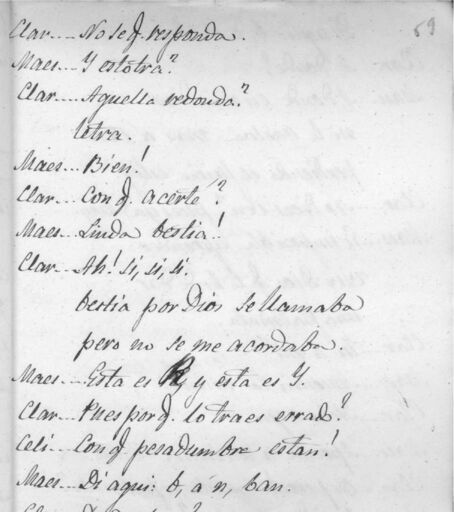 69
Clar.... No se q. responda.
Maes... Y estotra?
Clar... Aquella redonda?
letra.
Maes... Bien!
Clar... Con q. acerte?
Maes... Linda bestia!
Clar... Ah! si, si, si.
bestia por Dios se llamaba
pero no se me acordaba.
Maes... Esta es R, y esta es Y.
Clar... Pues por q. lo traes errado?
Celi... Con q. pesadumbre estan!
Maes... Di aqui: b, a n, ban.